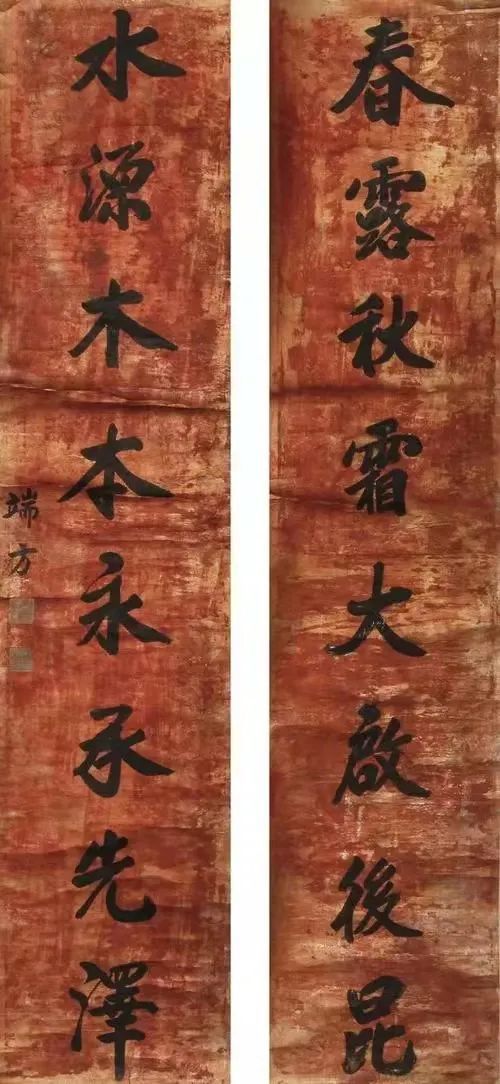 春露秋霜大啟後昆
水源木本永承先澤
端方